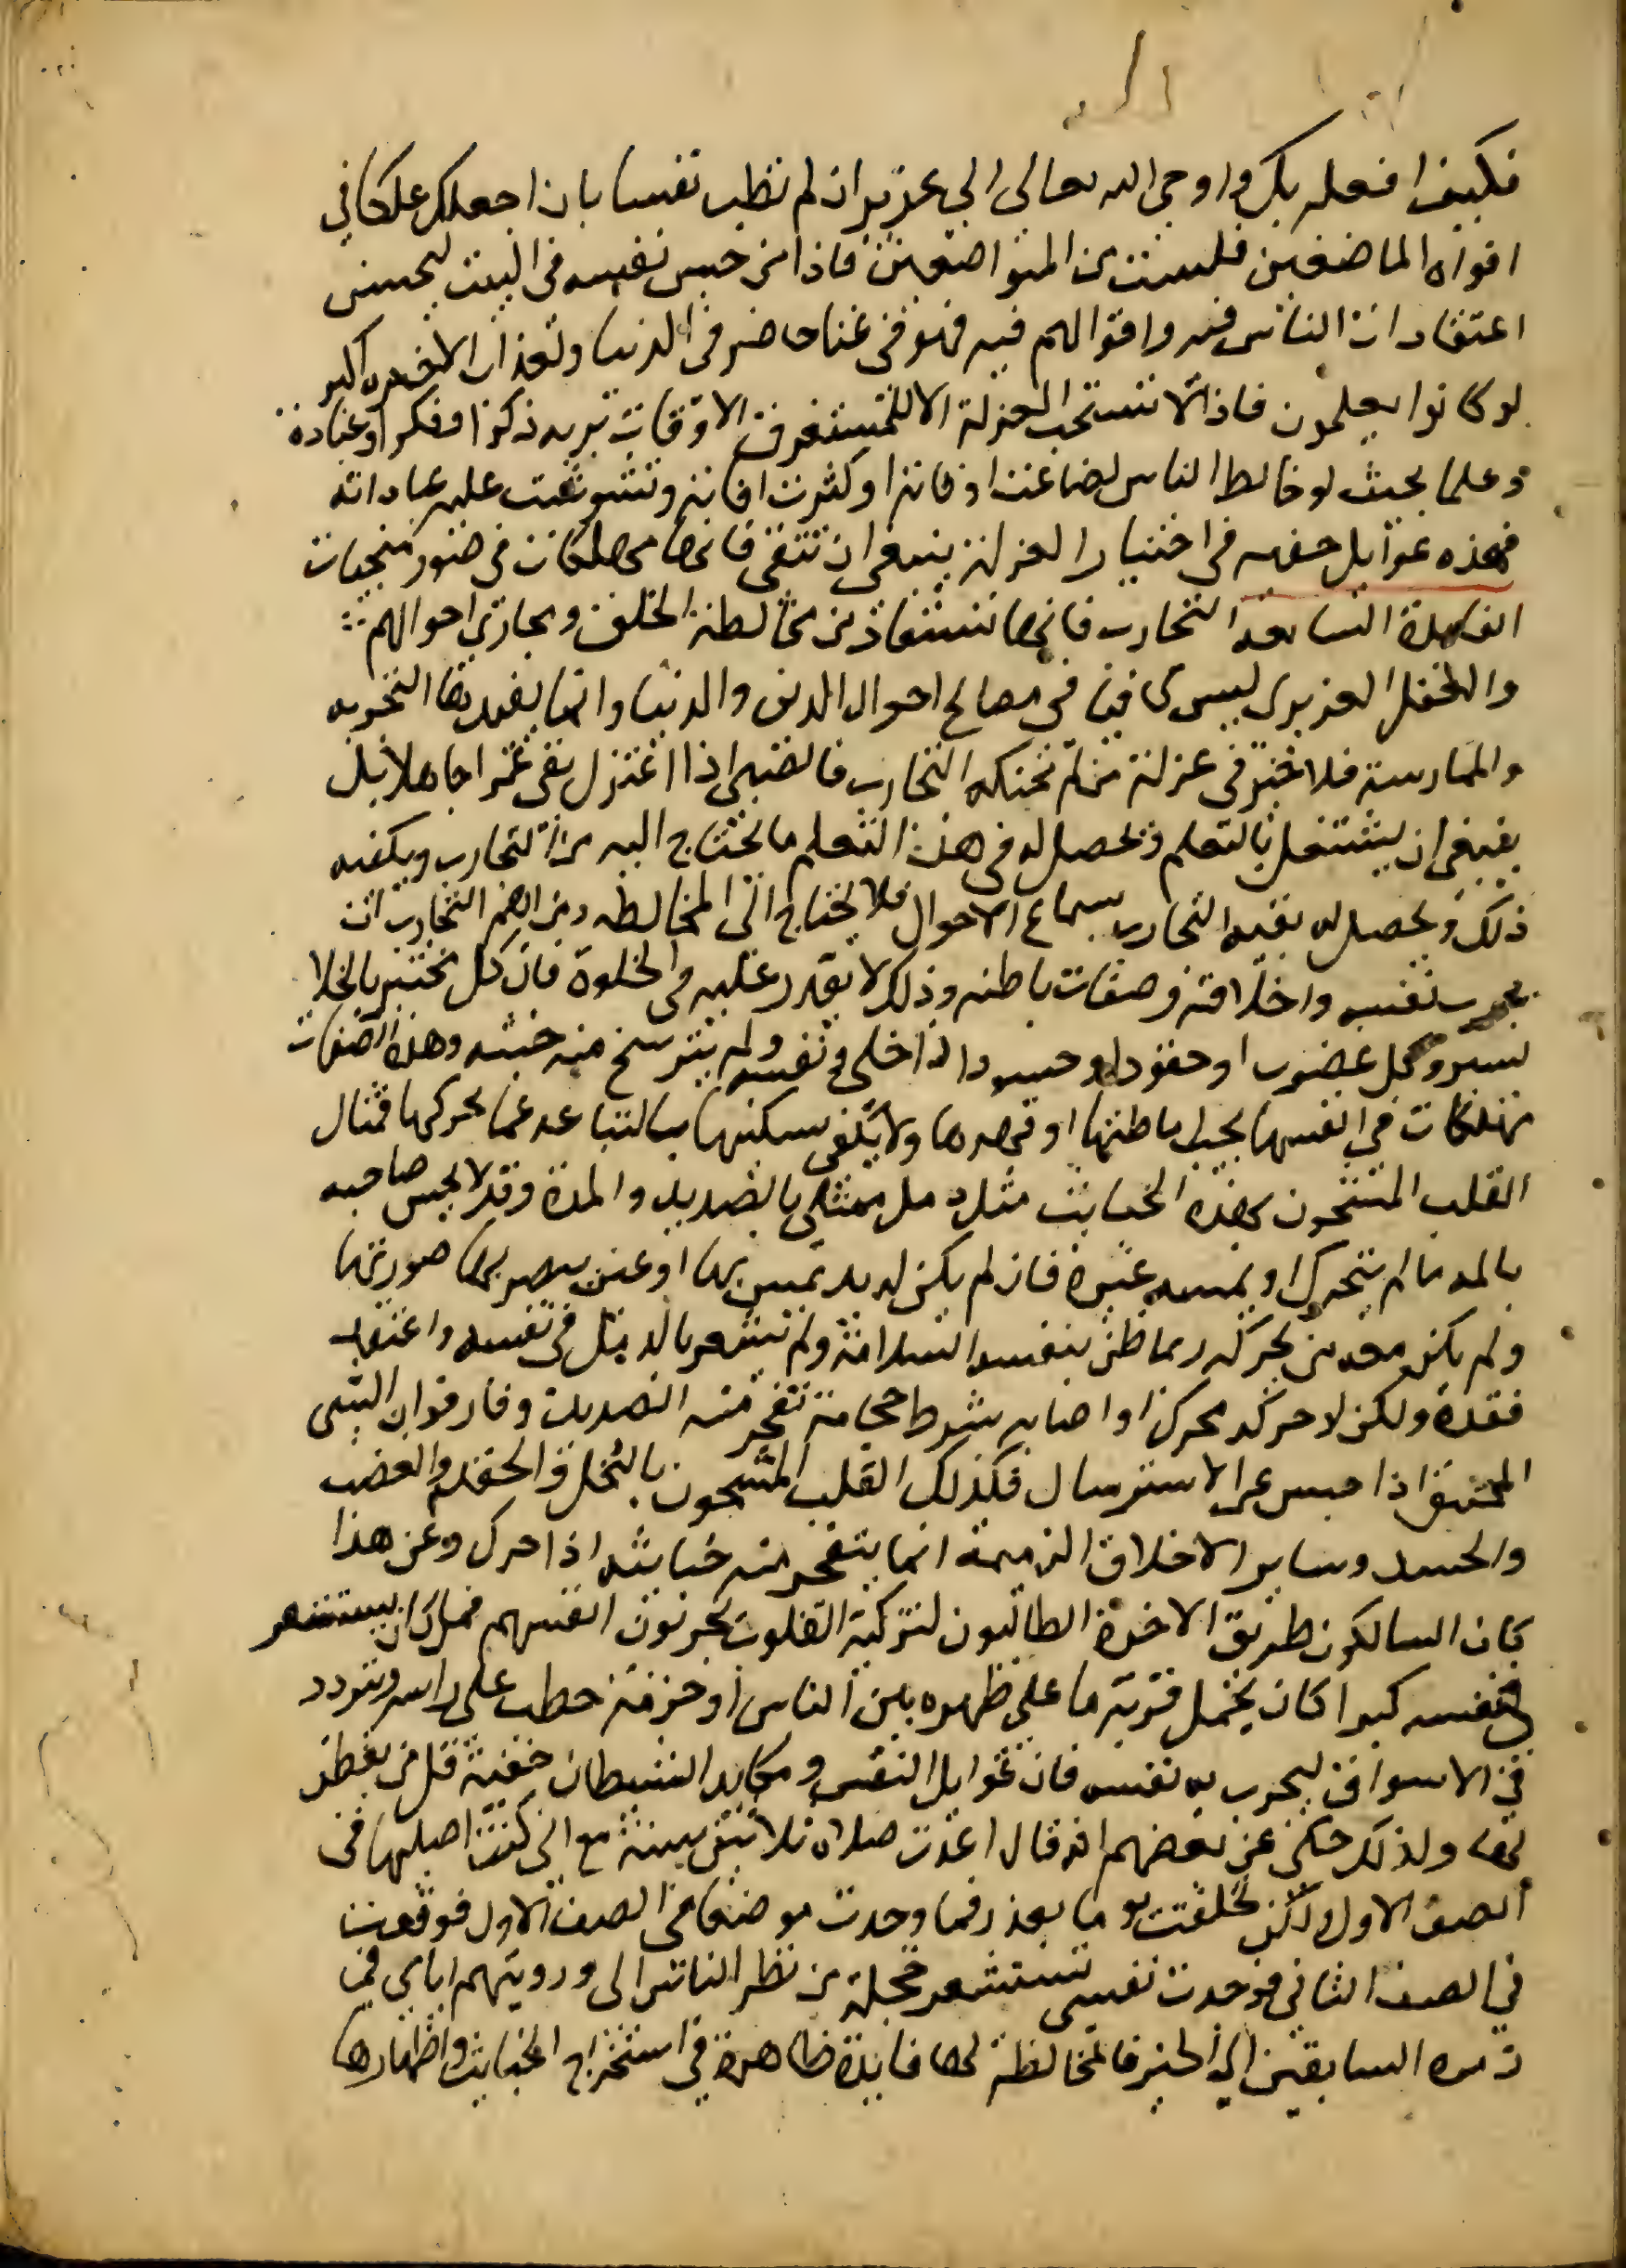 فكيف افعله بكم واوحى الله تعالى الى عزير ان لم تطب نفسا بان اجعلك علكا في
افواه الماضغين فلست من المتواضعين فاذا من حبس نفسه في البيت ليحسن
اعتقادات الناس فيه واقوالهم فيه فهو في عنا حاضر في الدنيا ولعذاب الاخرة اكبر
لو كانوا يعلمون فاذا لا تستحب العزلة الا لمستغرق الاوقات بربه ذكرا وفكرا وعبادة
وعلما بحيث لو خالط الناس لضاعت اوقاته او كثرت افاته وتشوشت عليه عباداته
فهذه غوايل خفيه في اختيار العزلة ينبغي ان تتقى فانها مهلكات في صور منجيات
الفايدة السابعه التجارب فانها تستفاد من مخالطة الخلق ومجاري احوالهم
والعقل الغريزي ليس كافيا في مصالح احوال الدين والدنيا وانما يفيدها التجربه
والممارسة فلا خير في عزلة من لم تحنكه التجارب فالصبي اذا اعتزل بقي غمرا جاهلا بل
ينبغي ان يشتغل بالتعلم ويحصل له في هذا التعلم ما يحتاج اليه من التجارب ويكفيه
ذلك ويحصل له بقية التجارب بسماع الاحوال فلا يحتاج الى المخالطه ومن اهم التجارب ان
يجرب نفسه واخلاقه وصفات باطنه وذلك لا يقدر عليه في الخلوة فان كل مختبر بالخلا
يسر وكل غضوب او حقود او حسود اذا خلى ونفسه ولم يترشح منه خبثه وهذه الصفات
مهلكات في انفسها يجب اماطتها او قهرها ولا يكفي تسكينها بالتباعد عما يحركها فمثال
القلب المشحون بهذه الخبايث مثل دمل ممتلى بالصديد والمدة وقد لا يحس صاحبه
بالمه ما لم يتحرك او يمسه غيره فان لم يكن له يد تمس بها او عين يبصر بها صورتها
ولم يكن معه من يحركه ربما ظن بنفسه السلامة ولم يشعر بالدمل في نفسه واعتقد
فقده ولكن لو حركه محرك او اصابه بشرط حجامة تفجر منه الصديد وفار فوران الشي
المختنق اذا حبس عن الاسترسال فكذلك القلب المشحون بالبخل والحقد والغضب
والحسد وساير الاخلاق الذميمه انما يتفجر منه خبايثه اذا حرك وعن هذا
كان السالكون طريق الاخرة الطالبون لتزكية القلوب يجربون انفسهم فمن كان يستشعر
في نفسه كبرا كان يحمل قربة ما على ظهره بين الناس او حزمة حطب على راسه ويتردد
في الاسواق ليجرب به نفسه فان غوايل النفس ومكايد الشيطان خفية قل من يفطن
لها ولذلك حكي عن بعضهم انه قال اعدت صلاة ثلاثين سنة مع اني كنت اصليها في
الصف الاول ولكن تخلفت يوما بعذر فما وجدت موضعا في الصف الاول فوقفت
في الصف الثاني فوجدت نفسي تستشعر خجلة من نظر الناس الي ورويتهم اياي في
زمرة السابقين الى الخير فالمخالطة لها فايدة ظاهرة في استخراج الخبايث واظهارها